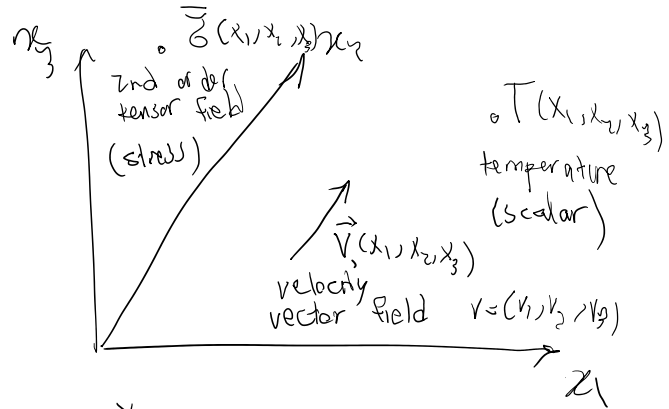 x₃
σ̿(x₁,x₂,x₃)
x₂
2nd order
tensor field
(stress)
T(x₁,x₂,x₃)
temperature
(scalar)
V⃗(x₁,x₂,x₃)
velocity
vector field
v=(v₁,v₂,v₃)
x₁